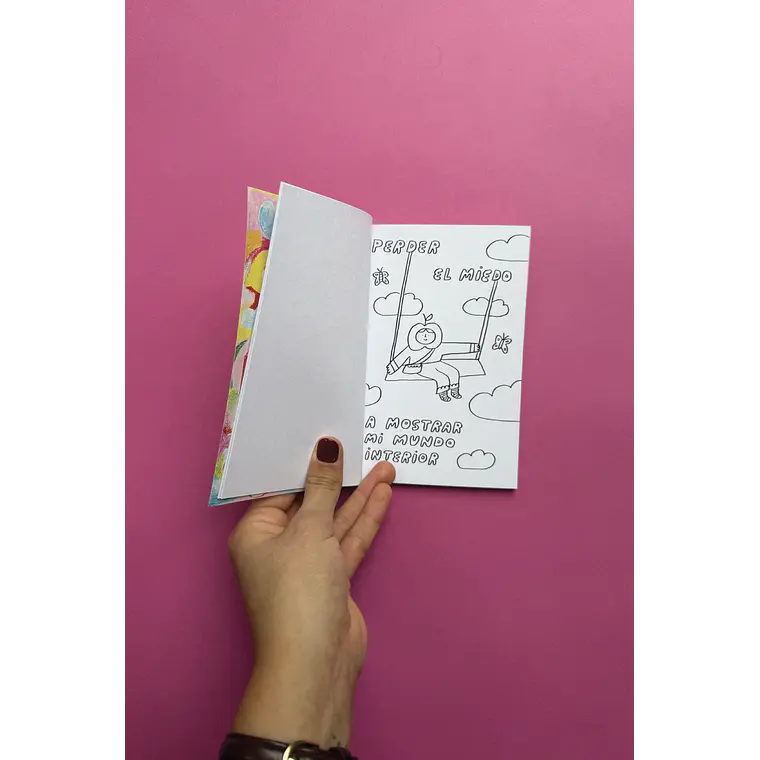 PERDER
EL MiEDO
A MOSTRAR
Mi MUNDO
iNTERiOR